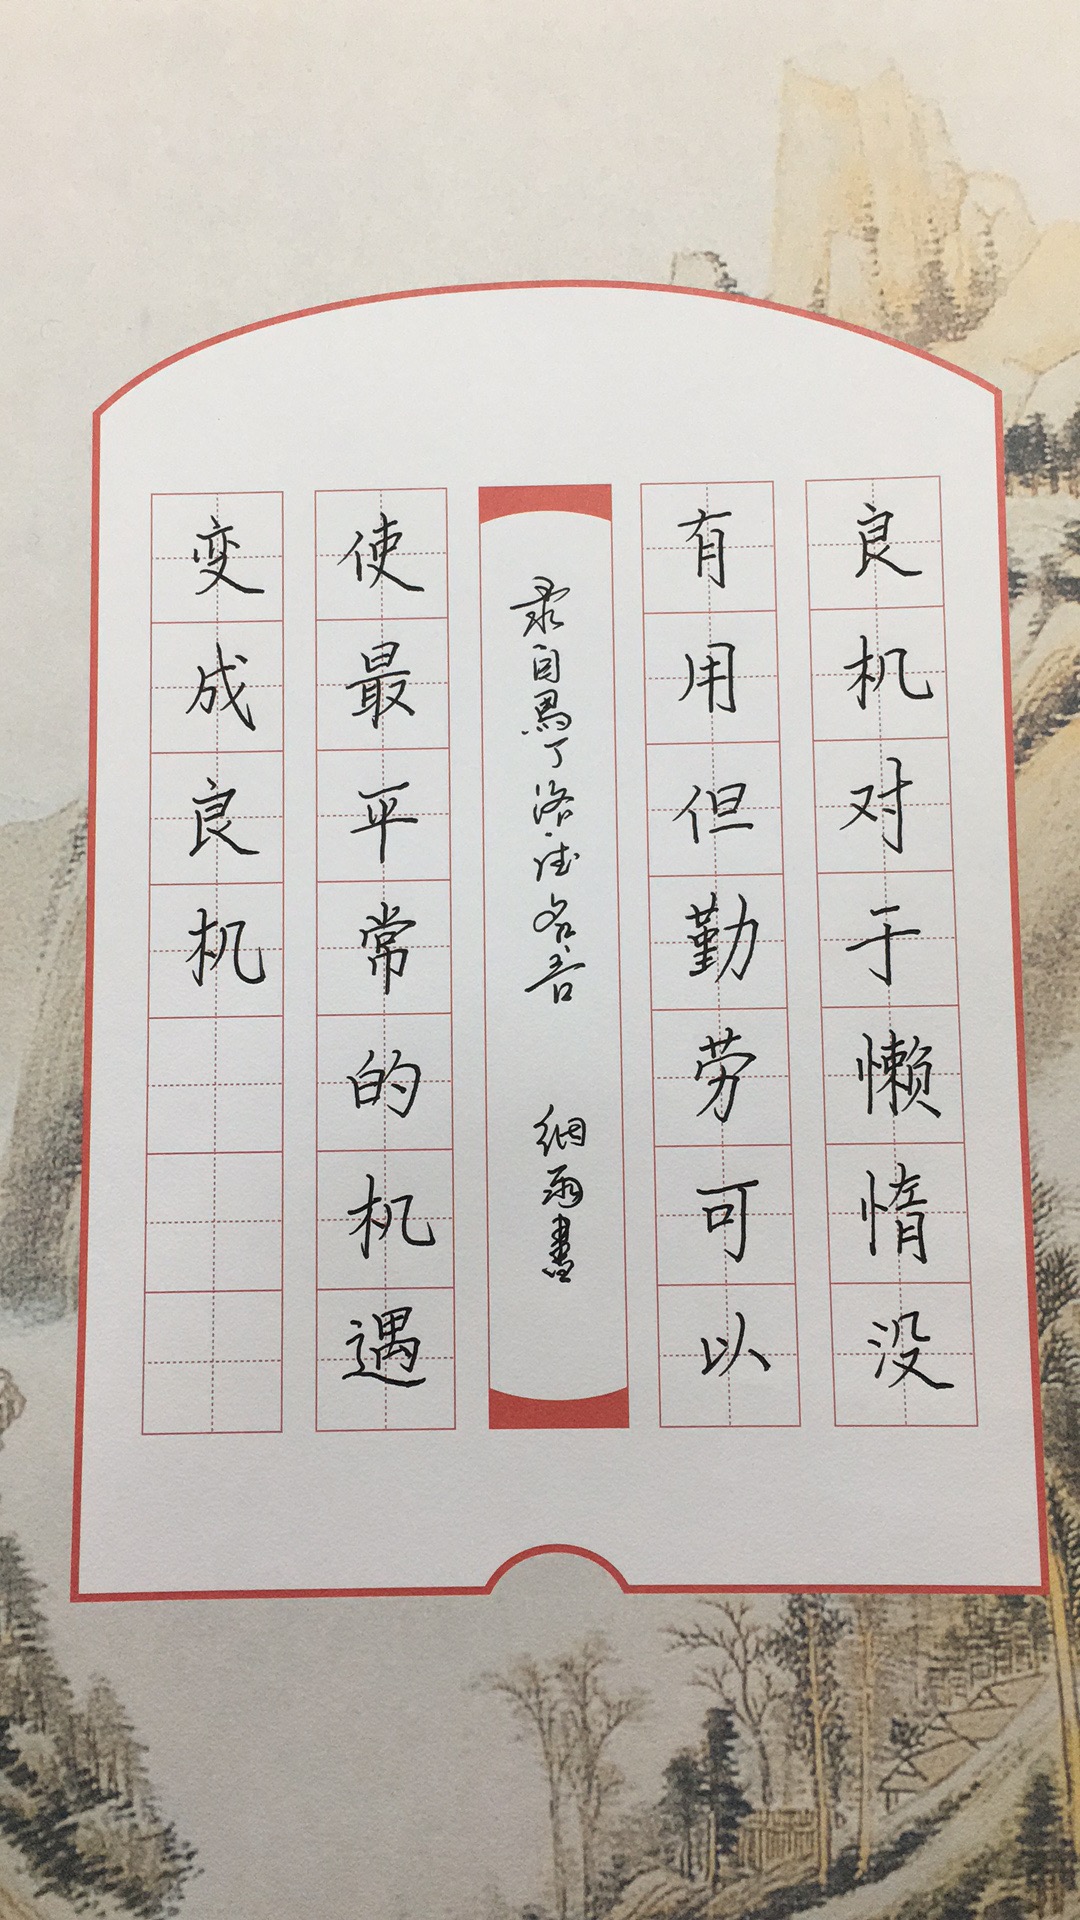 良机对于懒惰没
有用但勤劳可以
录自马丁洛德名言 细雨书
使最平常的机遇
变成良机